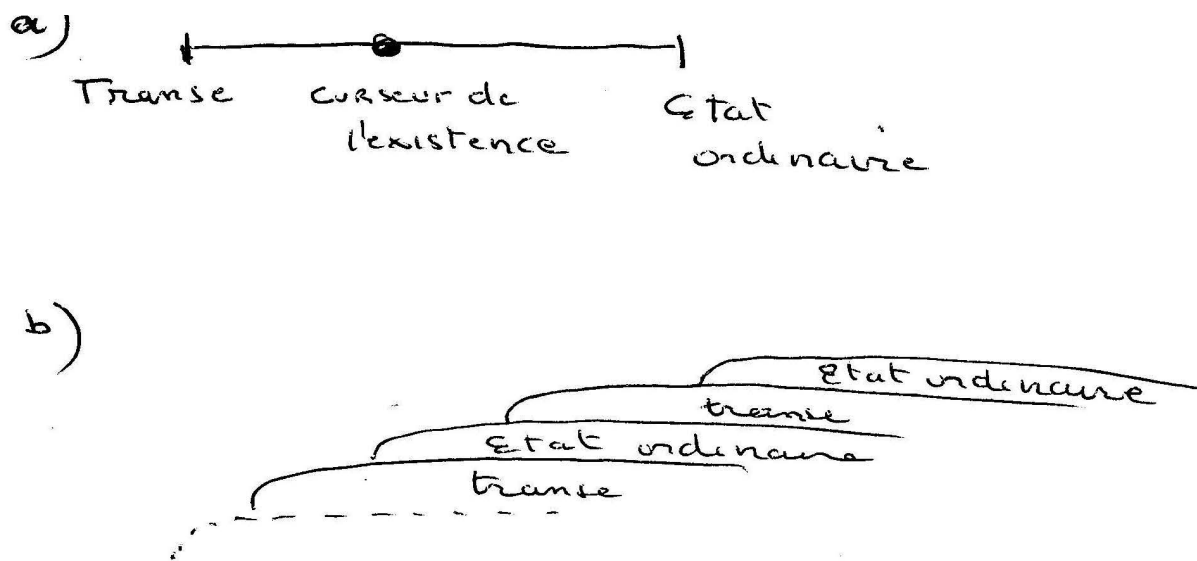 a)
Transe curseur de l'existence Etat ordinaire
b)
Etat ordinaire
transe
Etat ordinaire
transe